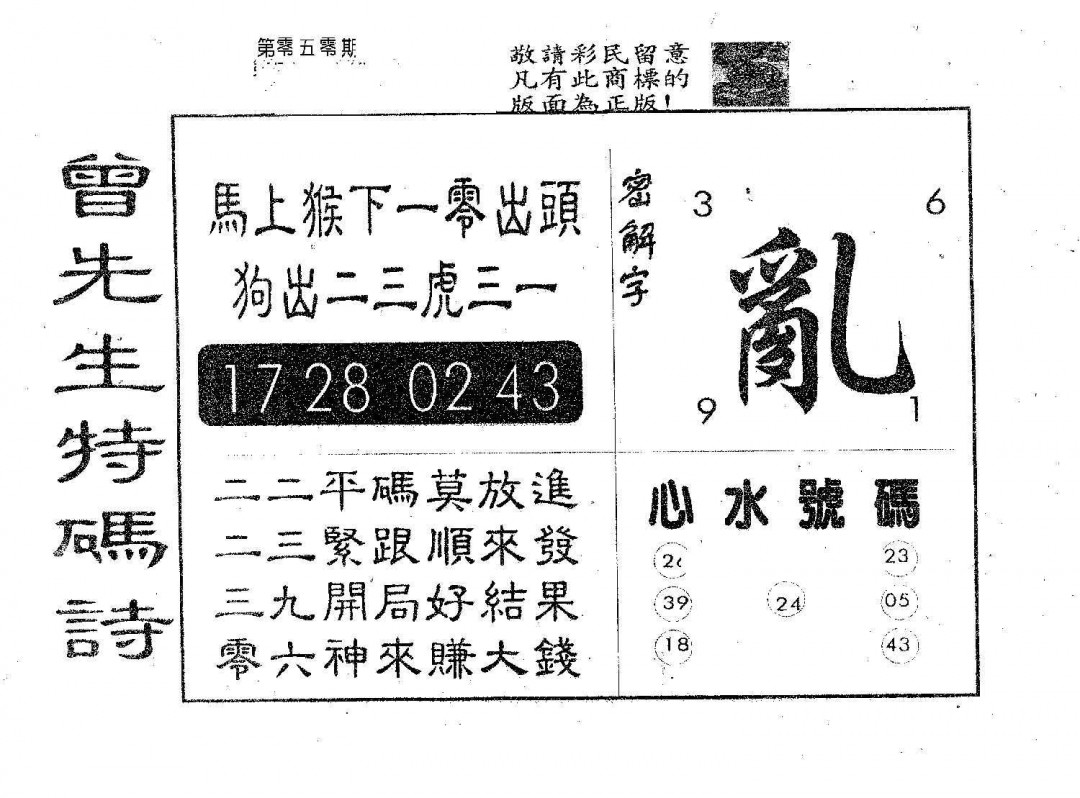 第零五零期
敬請彩民留意
凡有此商標的
版面為正版!
曾先生特碼詩
馬上猴下一零出頭
狗出二三虎三一
17 28 02 43
二二平碼莫放進
二三緊跟順來發
三九開局好結果
零六神來賺大錢
密解字
3 6
亂
9 1
心水號碼
26 23
39 24 05
18 43